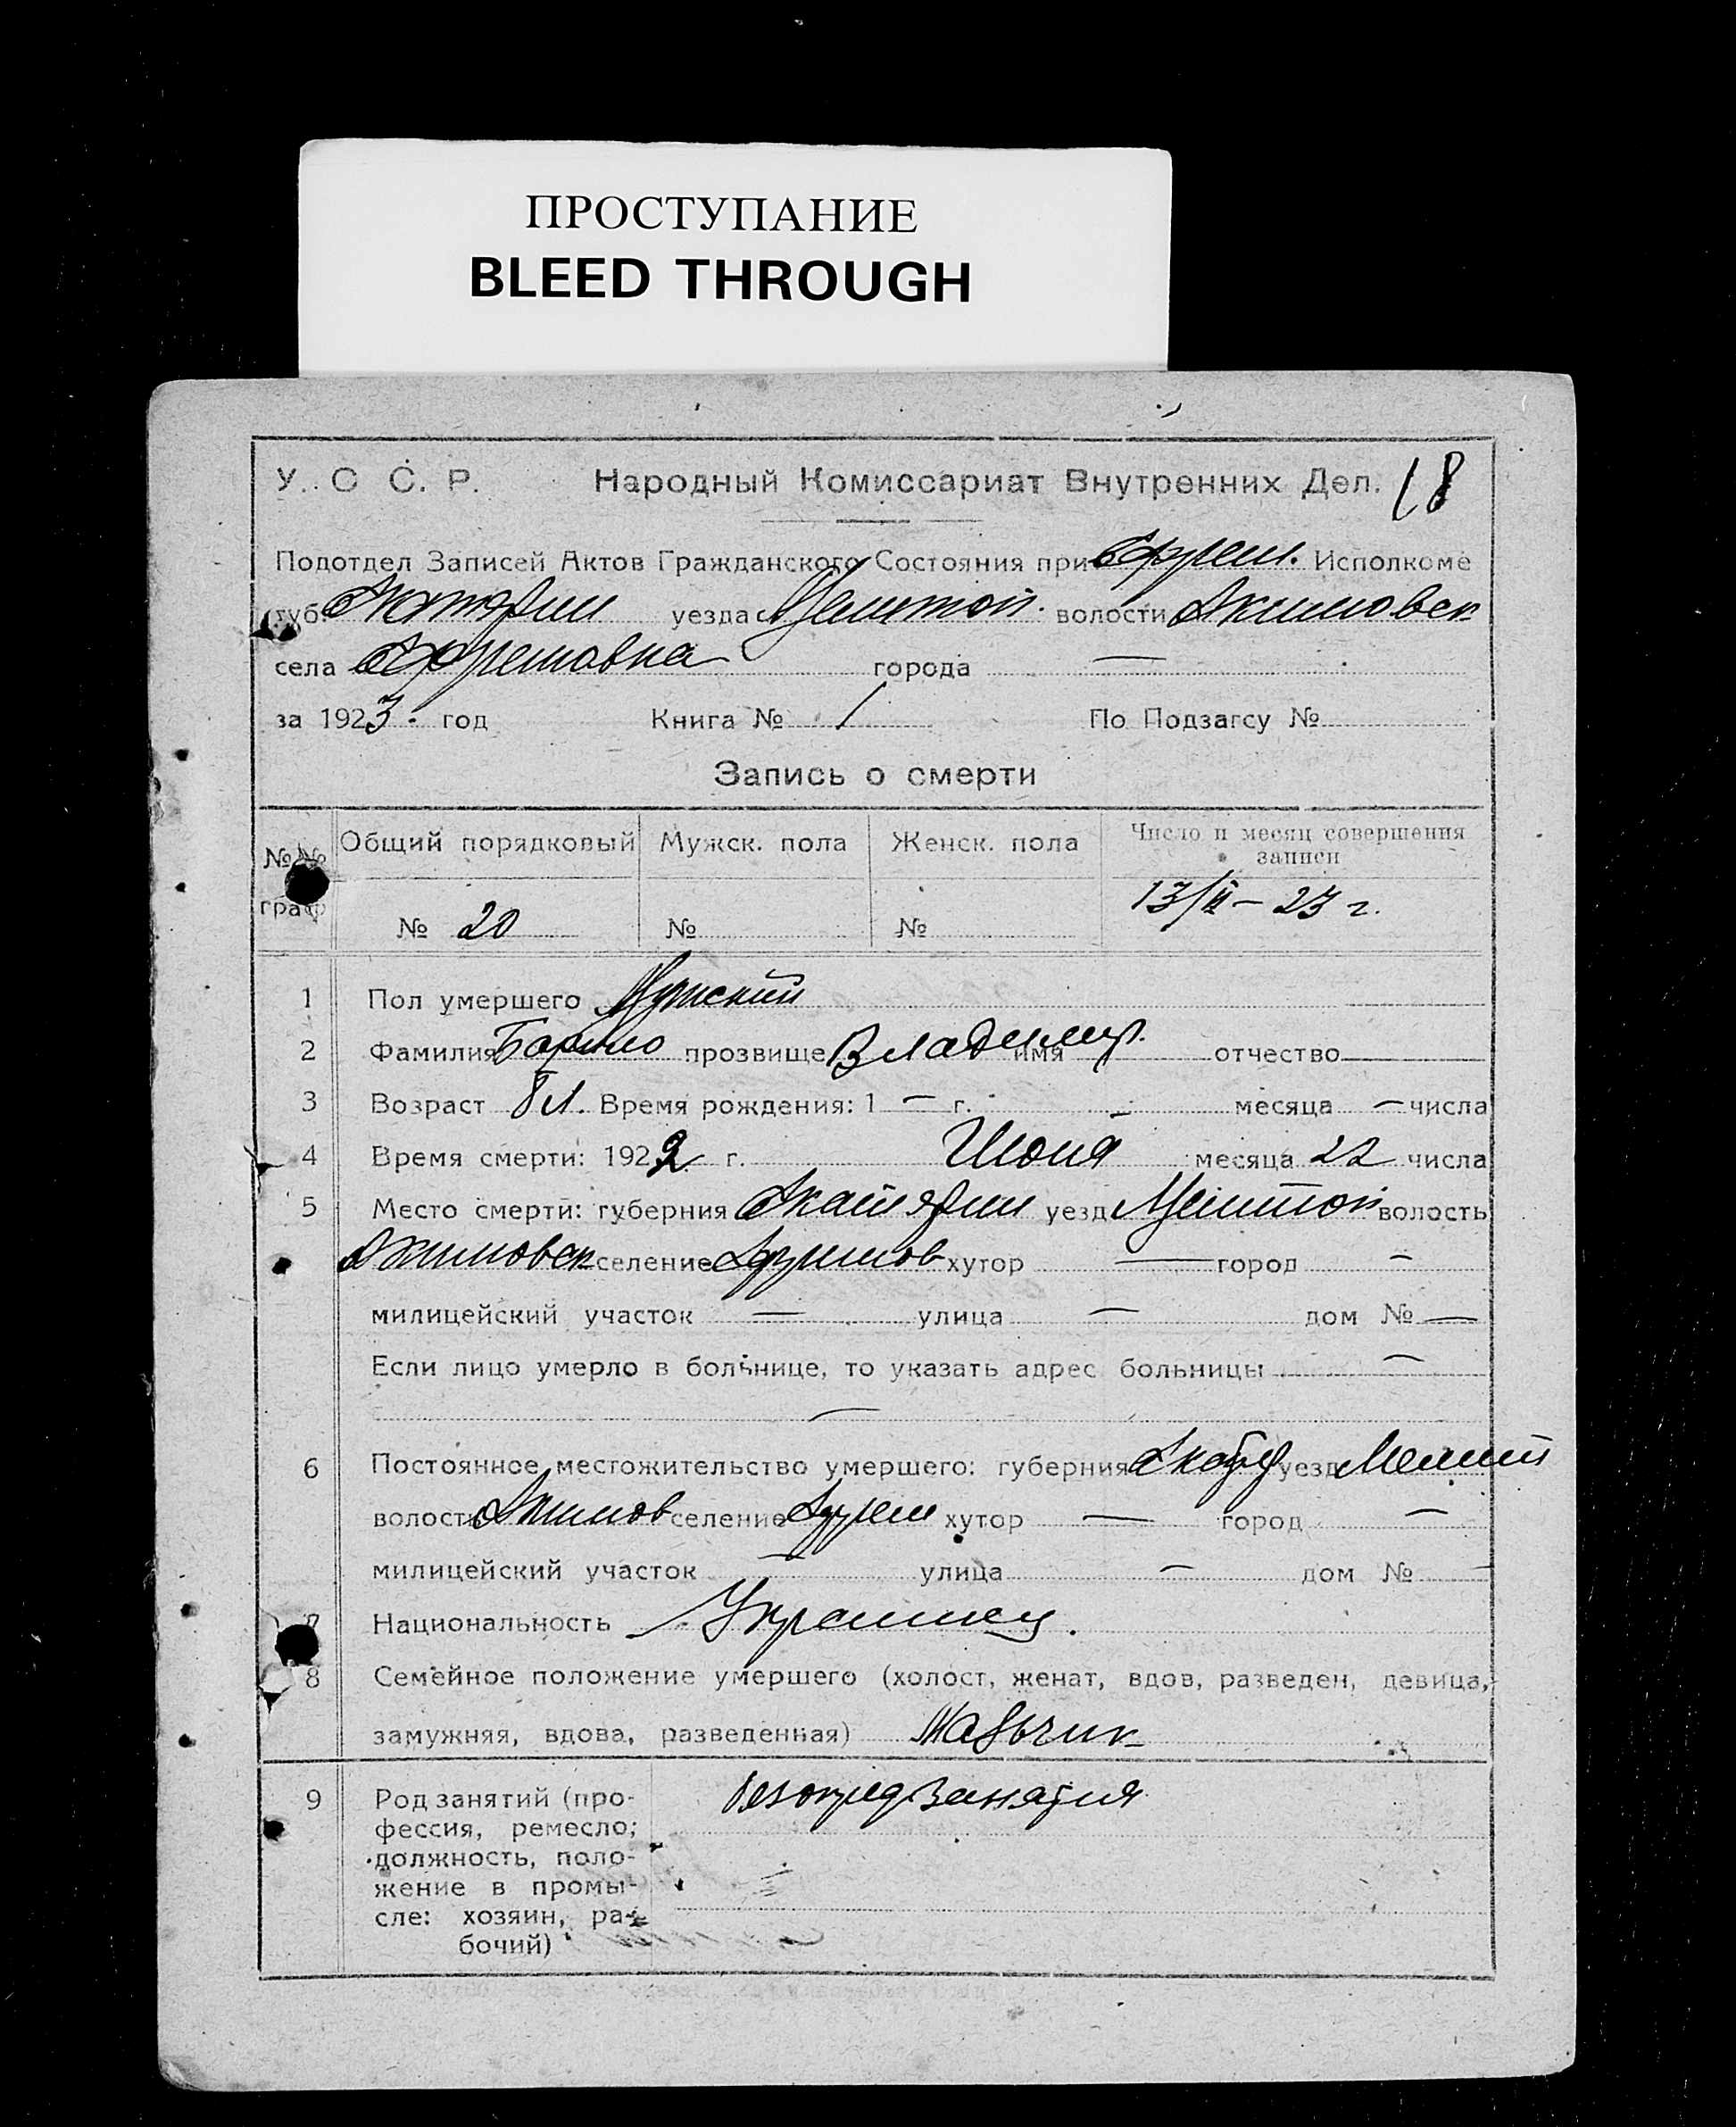 ПРОСТУПАНИЕ
BLEED THROUGH
У. С С. Р. Народный Комиссариат Внутренних Дел. 18
Подотдел Записей Актов Гражданского Состояния при Исполкоме
губ. уезда волости Акимовск
села города —
за 1923. год Книга № 1 По Подзагсу №
Запись о смерти
№№ граф Общий порядковый Мужск. пола Женск. пола Число и месяц совершения записи
№ 20 № № 13/II – 23 г.
1 Пол умершего Мужский
2 Фамилия прозвище Владимир имя отчество
3 Возраст 8 л. Время рождения: 1 — г. месяца — числа
4 Время смерти: 1922 г. Июня месяца 22 числа
5 Место смерти: губерния уезд волость
Акимовск селение хутор — город —
милицейский участок — улица — дом № —
Если лицо умерло в больнице, то указать адрес больницы —
—
6 Постоянное местожительство умершего: губерния уезд Мелит
волость Акимов селение хутор — город —
милицейский участок — улица — дом № —
7 Национальность Украинец.
8 Семейное положение умершего (холост, женат, вдов, разведен, девица,
замужняя, вдова, разведенная) Мальчик
9 Род занятий (про-
фессия, ремесло;
должность, поло-
жение в промы-
сле: хозяин, ра-
бочий) занятия